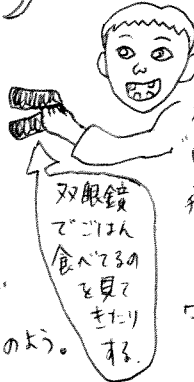 双眼鏡
でごはん
食べてるの
を見て
きたり
する.
のよう。